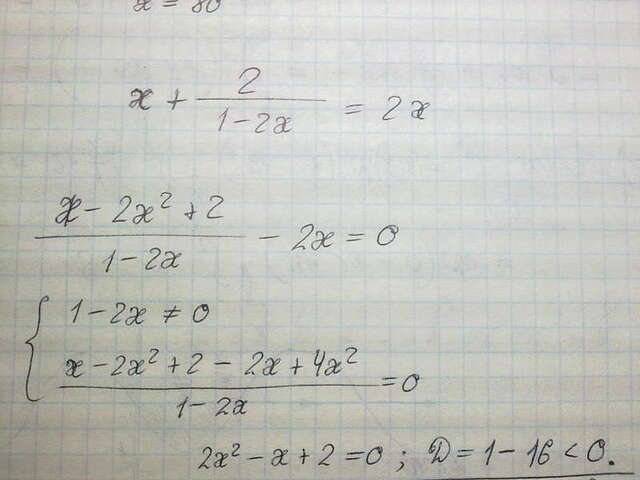 x = 80
x + 2/(1-2x) = 2x
(x - 2x² + 2)/(1-2x) - 2x = 0
{ 1-2x ≠ 0
(x - 2x² + 2 - 2x + 4x²)/(1-2x) = 0
2x² - x + 2 = 0 ; D = 1 - 16 < 0.